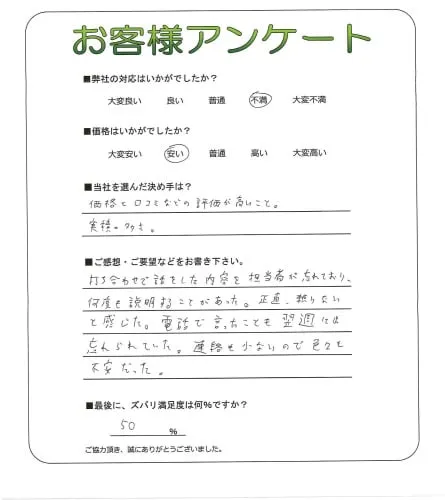 お客様アンケート
■弊社の対応はいかがでしたか?
大変良い 良い 普通 不満 大変不満
■価格はいかがでしたか?
大変安い 安い 普通 高い 大変高い
■当社を選んだ決め手は?
価格と口コミなどの評価が高いこと。
実績の多さ。
■ご感想・ご要望などをお書き下さい。
打ち合わせで話をした内容を担当者が忘れており、
何度も説明することがあった。正直、頼りない
と感じた。電話で言ったことも翌週には
忘れられていた。連絡も少ないので色々と
不安だった。
■最後に、ズバリ満足度は何%ですか?
50 %
ご協力頂き、誠にありがとうございました。